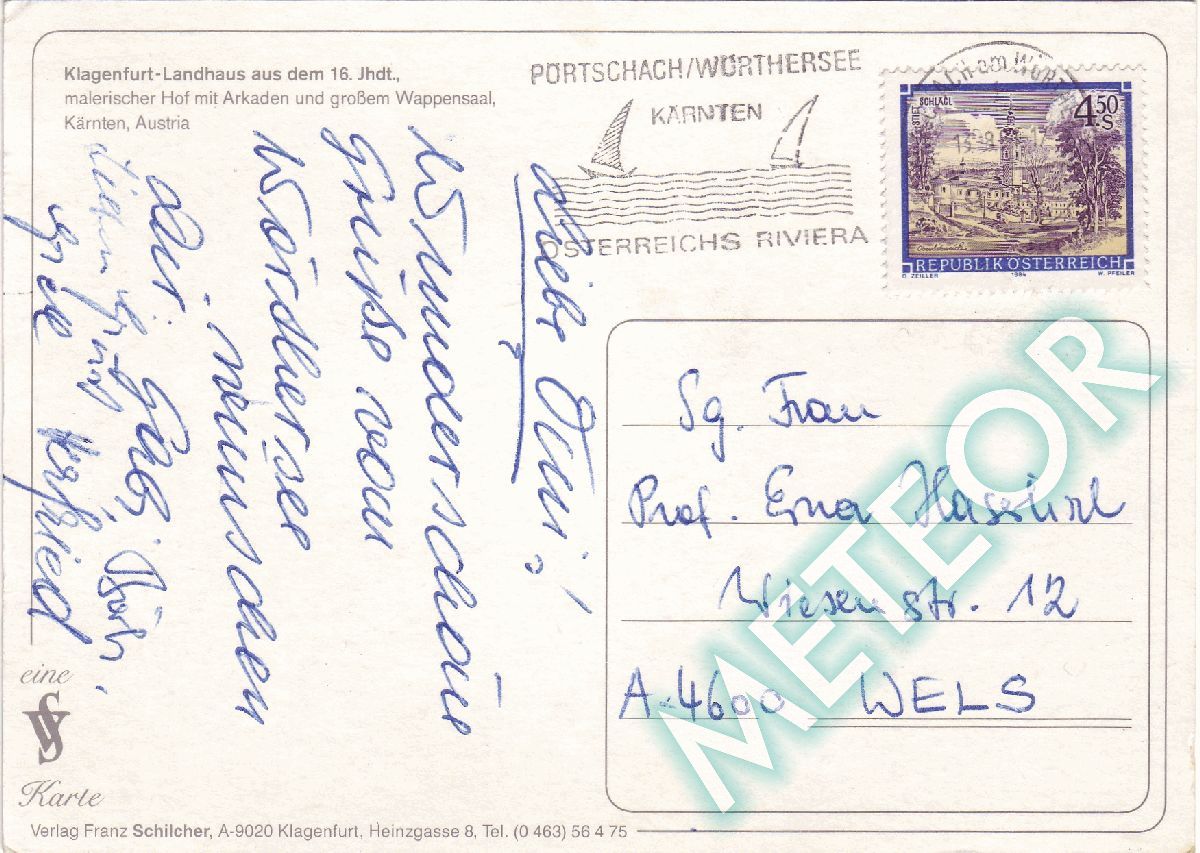 Klagenfurt-Landhaus aus dem 16. Jhdt.,
malerischer Hof mit Arkaden und großem Wappensaal,
Kärnten, Austria
PÖRTSCHACH/WÖRTHERSEE
KÄRNTEN
ÖSTERREICHS RIVIERA
STIFT SCHLÄGL
4.50 S
REPUBLIK ÖSTERREICH
O. ZEILLER 1984 W. PFEILER
Liebe Omi,!
Wunderschöne
Grüße vom
Wörthersee
wünschen
Dir: Gabi
Sg. Frau
Prof. Erna
Wiesenstr. 12
A-4600 WELS
METEOR
eine
VFS
Karte
Verlag Franz Schilcher, A-9020 Klagenfurt, Heinzgasse 8, Tel. (0 463) 56 4 75